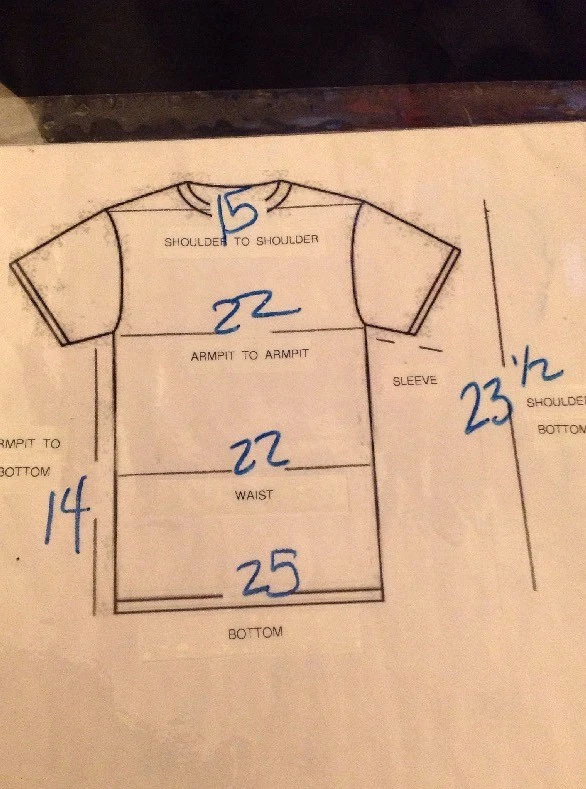 15
SHOULDER TO SHOULDER
22
ARMPIT TO ARMPIT
SLEEVE
23 1/2
SHOULDER
BOTTOM
RMPIT TO
BOTTOM
22
WAIST
14
25
BOTTOM